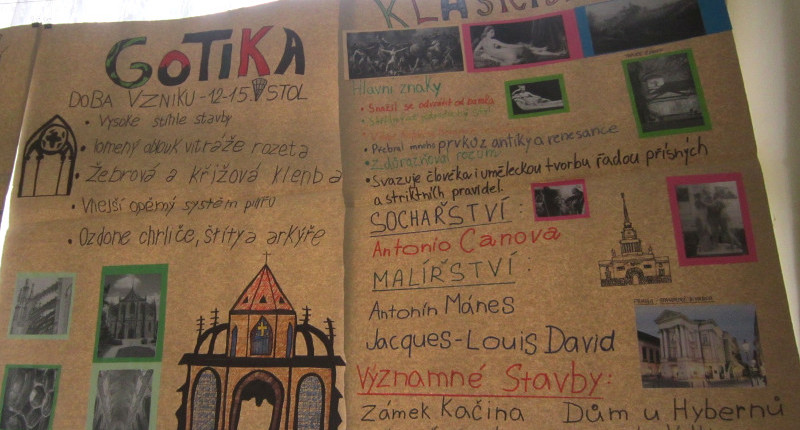 GOTIKA
DOBA VZNIKU - 12-15. STOL
• Vysoké štíhlé stavby
• lomený oblouk vitráže rozeta
• Žebrová a křížová klenba
• Vnější opěrný systém pilířů
• Ozdone chrliče, štíty a arkýře
KLASICI
Hlavní znaky
• Snažil se odvrátit od baroka
• Přebral mnoho prvků z antiky a renesance
• Zdůrazňoval rozum
• Svazuje člověka i uměleckou tvorbu řadou přísných
a striktních pravidel.
SOCHAŘSTVÍ:
Antonio Canova
MALÍŘSTVÍ:
Antonín Mánes
Jacques-Louis David
Významné Stavby:
Zámek Kačina Dům u Hybernů